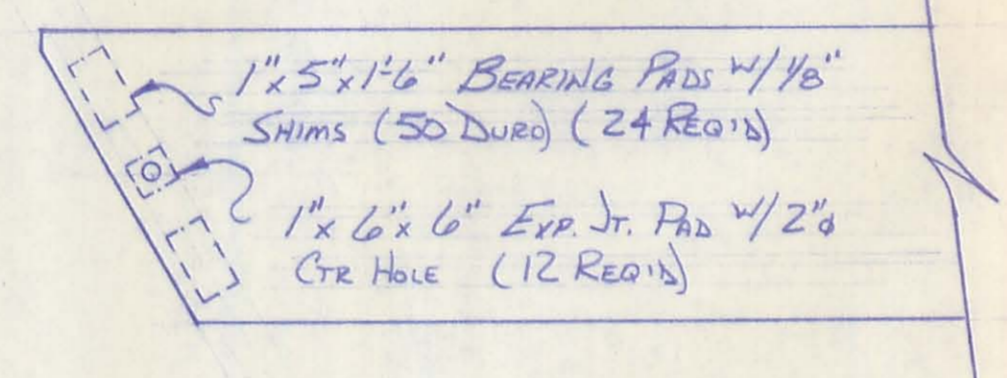 1"x5"x1'-6" BEARING PADS W/ 1/8"
SHIMS (50 DURO) (24 REQ'D)
1"x 6"x 6" EXP. JT. PAD W/ 2"ø
CTR HOLE (12 REQ'D)